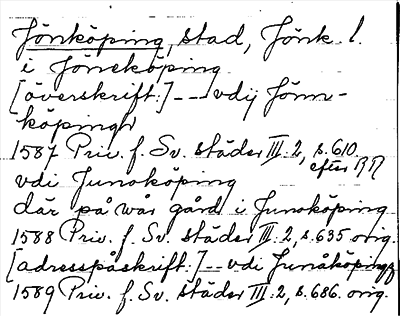 Jönköping, stad, Jönk. l.
i Jöneköping
[överskrift:] --- vdij Jönn-
köpingh
1587 Priv. f. Sv. städer III:2, s. 610
efter RR
vdi Junoköping
där på wår gård i Junoköping
1588 Priv. f. Sv. städer III:2, s. 635 orig.
[adresspåskrift:] -- vdi Junåköping
1589 Priv. f. Sv. städer III:2, s. 686. orig.